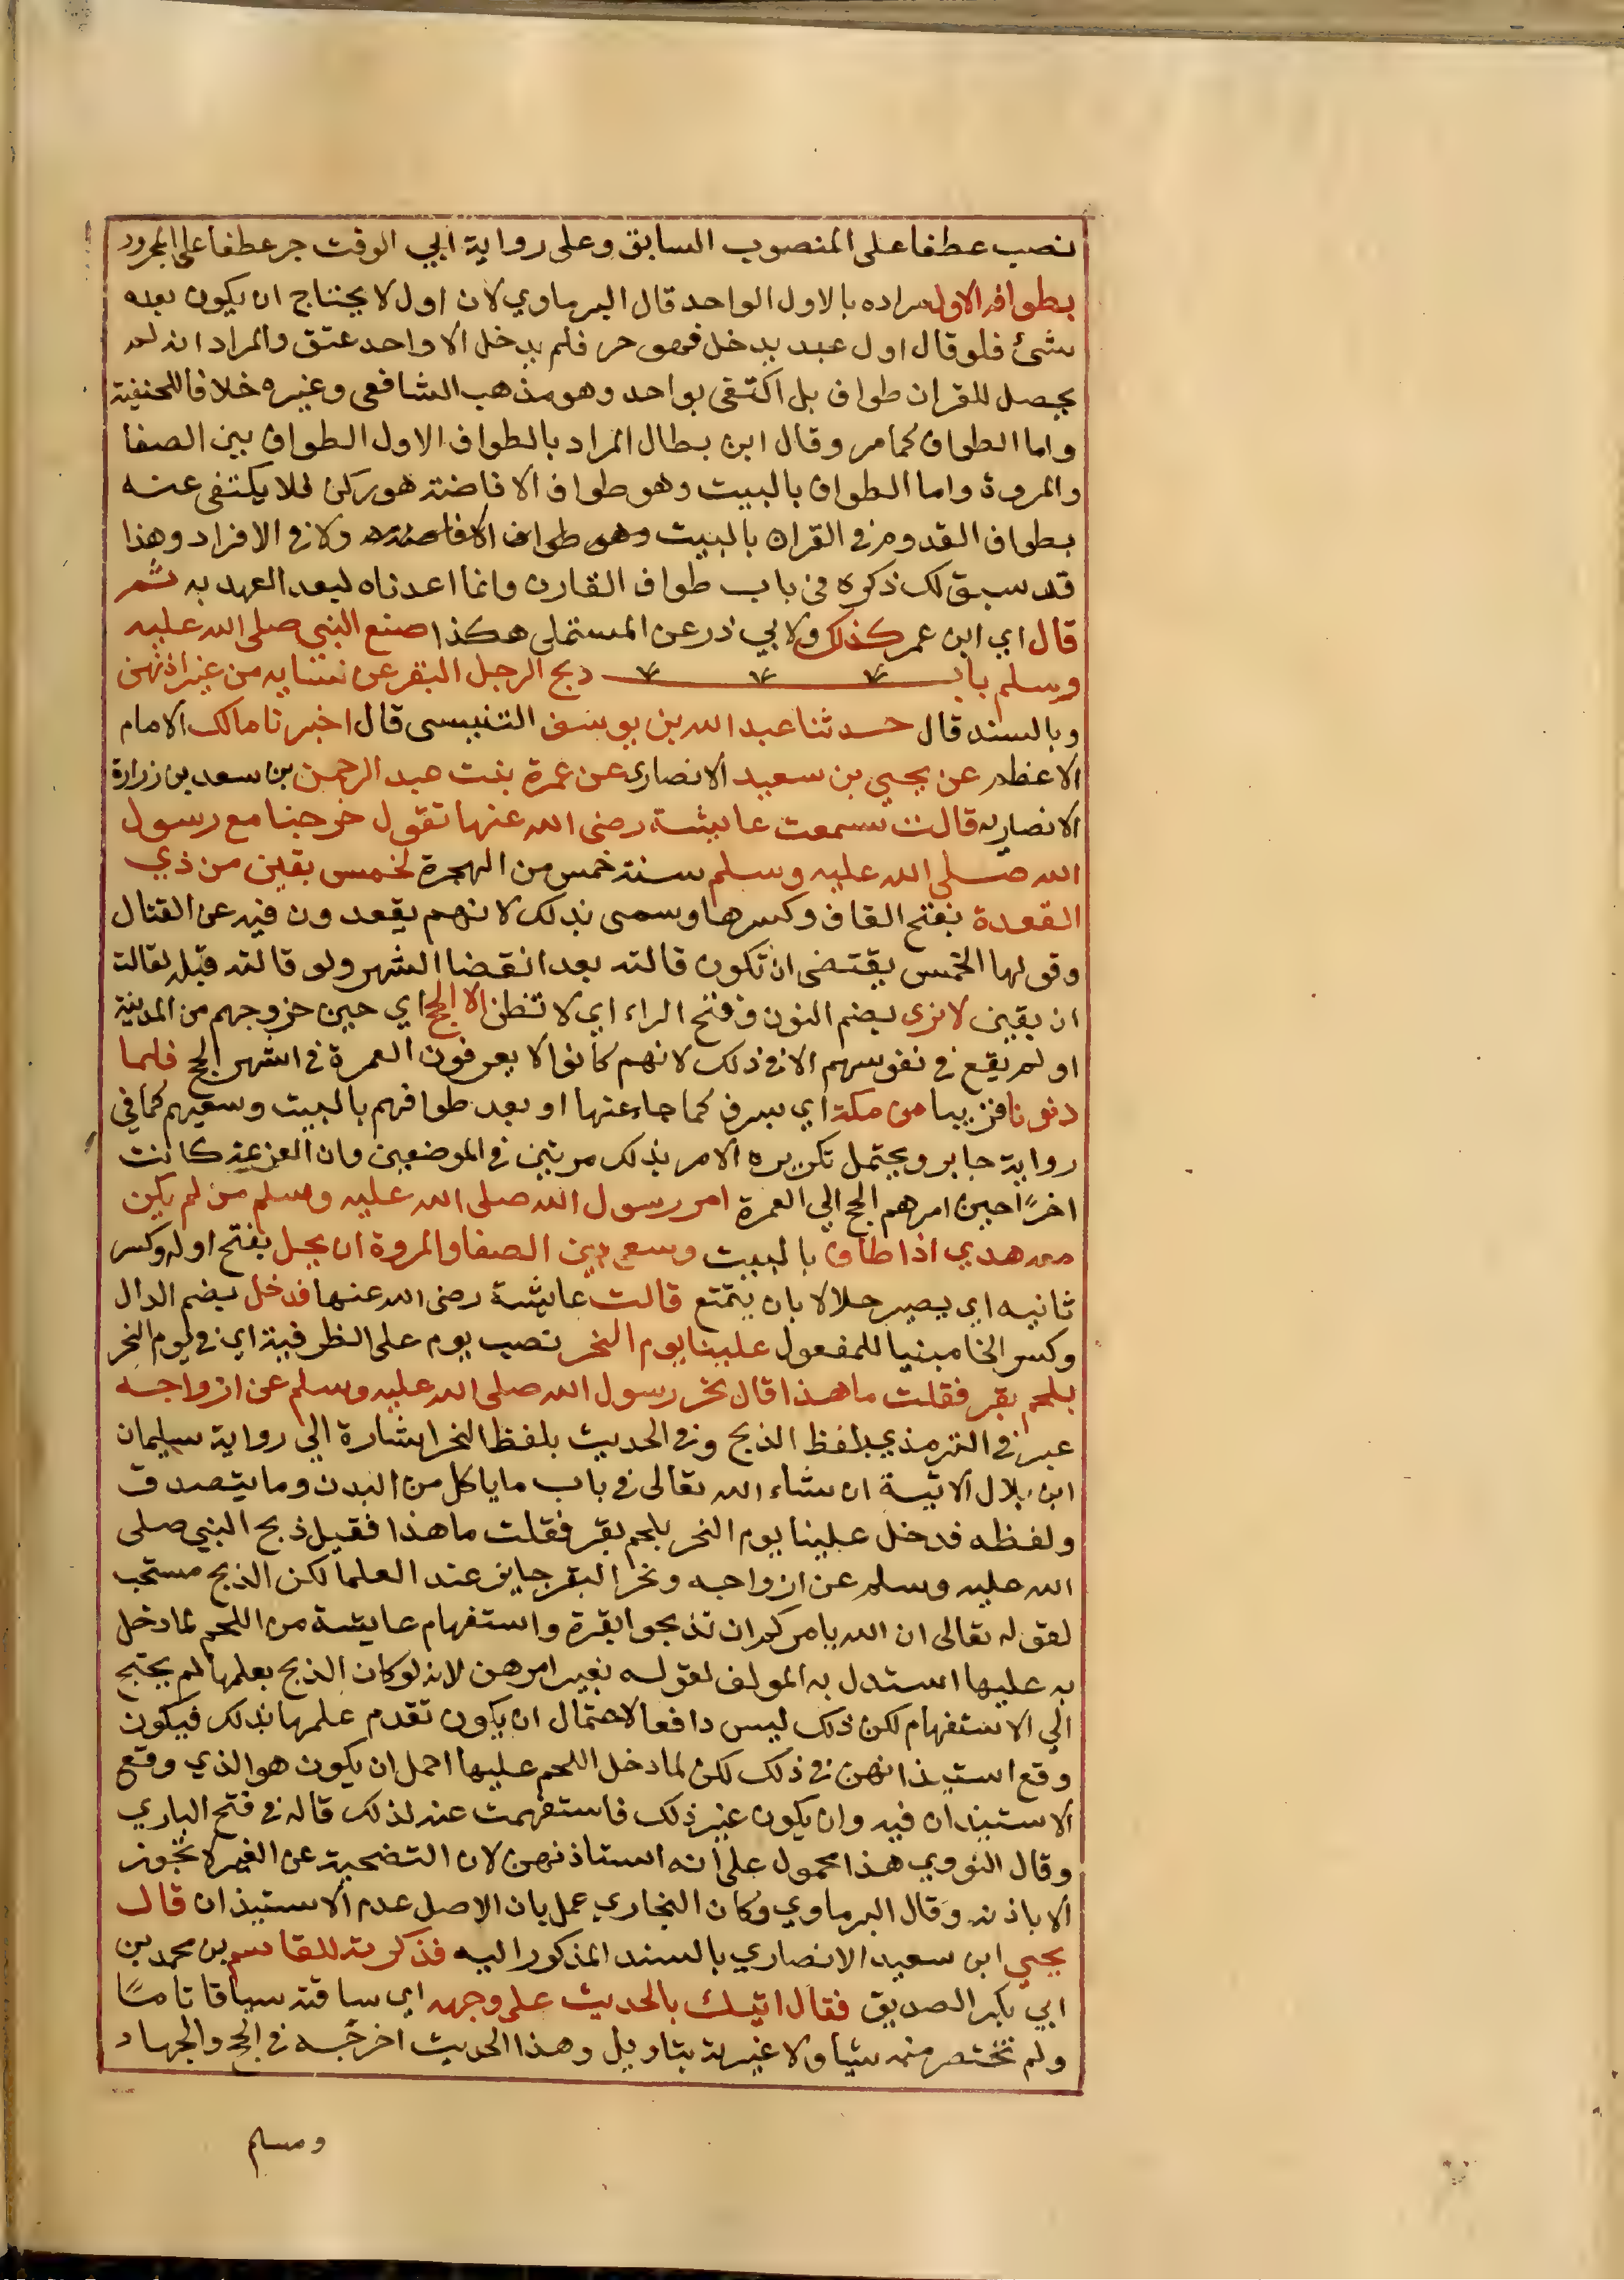 نصب عطفا على المنصوب السابق وعلى رواية ابي الوقت جر عطفا على المجرور
بطوافه الاول مراده بالاول الواحد قال البرماوي لان اول لا يحتاج ان يكون بعده
شئ فلو قال اول عبد يدخل فهو حر فلم يدخل الا واحد عتق والمراد انه لم
يجعل للقران طواف بل اكتفى بواحد وهو مذهب الشافعي وغيره خلافا للحنفية
واما الطواف كما مر وقال ابن بطال المراد بالطواف الاول الطواف بين الصفا
والمروة واما الطواف بالبيت وهو طواف الافاضة هو ركن فلا يكتفى عنه
بطواف القدوم في القران بالبيت وهو طواف الافاضة ولا في الافراد وهذا
قد سبق لك ذكره في باب طواف القارن وانما اعدناه لبعد العهد به ثم
قال اي ابن عمر كذلك ولابي ذر عن المستملي هكذا صنع النبي صلى الله عليه
وسلم باب ذبح الرجل البقر عن نسايه من غير اذنهن
وبالسند قال حدثنا عبد الله بن يوسف التنيسي قال اخبرنا مالك الامام
الاعظم عن يحيي بن سعيد الانصاري عن عمرة بنت عبد الرحمن بن سعد بن زرارة
الانصاريه قالت سمعت عايشة رضى الله عنها تقول خرجنا مع رسول
الله صلى الله عليه وسلم سنة خمس من الهجرة لخمس بقين من ذي
القعدة بفتح القاف وكسرها وسمى بذلك لانهم يقعدون فيه عن القتال
وقولها الخمس يقتضى ان تكون قالته بعد انقضا الشهر ولو قالته قبله لقالت
ان بقين لا نرى بضم النون وفتح الراء اي لا نظن الا الحج اي حين خروجهم من المدينة
او لم يقع في نفوسهم الا في ذلك لانهم كانوا لا يعرفون العمرة في اشهر الحج فلما
دنونا قريبا من مكة اي بسرف كما جاء عنها او بعد طوافهم بالبيت وسعيهم كما في
رواية جابر ويحتمل تكريره الامر بذلك مرتين في الموضعين وان العزعة كانت
اخرًا حين امرهم الحج الي العمرة امر رسول الله صلى الله عليه وسلم من لم يكن
معه هدي اذا طاف بالبيت وسعى بين الصفا والمروة ان يحل بفتح اوله وكسر
ثانيه اي يصير حلالا بان يتمتع قالت عايشة رضى الله عنها فدخل بضم الدال
وكسر الخا مبنيا للمفعول علينا يوم النحر نصب يوم على الظرفية اي في يوم النحر
بلحم بقر فقلت ما هذا قال نحر رسول الله صلى الله عليه وسلم عن ازواجه
عبر في الترمذي بلفظ الذبح وفي الحديث بلفظ النحر اشارة الي رواية سليمان
ابن بلال الاتية ان شاء الله تعالى في باب ما ياكل من البدن وما يتصدق
ولفظه فدخل علينا يوم النحر بلحم بقر فقلت ما هذا فقيل ذبح النبي صلى
الله عليه وسلم عن ازواجه ونحر البقر جايز عند العلما لكن الذبح مستحب
لقوله تعالى ان الله يامركم ان تذبحوا بقرة واستفهام عايشة من اللحم لما دخل
به عليها استدل به المولف لقوله بغير امرهن لانه لو كان الذبح بعلمها لم يحتج
الي الاستفهام لكن ذلك ليس دافعا لاحتمال ان يكون تقدم علمها بذلك فيكون
وقع استيذانهن في ذلك لكن لما دخل اللحم عليها احمل ان يكون هو الذي وقع
الاستيذان فيه وان يكون غير ذلك فاستفهمت عنه لذلك قاله في فتح الباري
وقال النووي هذا محمول على انه استاذنهن لان التضحية عن الغير لا تجوز
الا باذنه وقال البرماوي وكان البخاري عمل بان الاصل عدم الاستيذان قال
يحيي ابن سعيد الانصاري بالسند المذكور اليه فذكرته للقاسم بن محمد بن
ابي بكر الصديق فقال اتيتك بالحديث على وجهه اي ساقته سياقا تامًا
ولم تختصر منه شيا ولا غيرته بتاويل وهذا الحديث اخرجه في الحج والجهاد
ومسلم